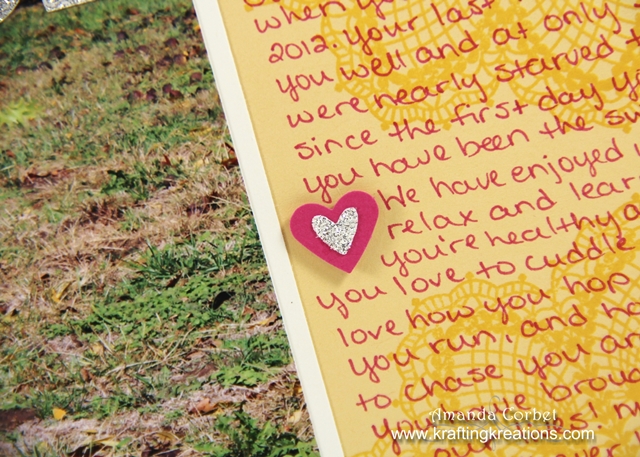 when yo
2012. Your last
you well and at only
were nearly starved t
since the first day yo
you have been the sw
We have enjoyed
relax and lear
you're healthy a
you love to cuddle
love how you hop
you run, and ho
to chase you ar
brou
Amanda Corbet
www.kraftingkreations.com